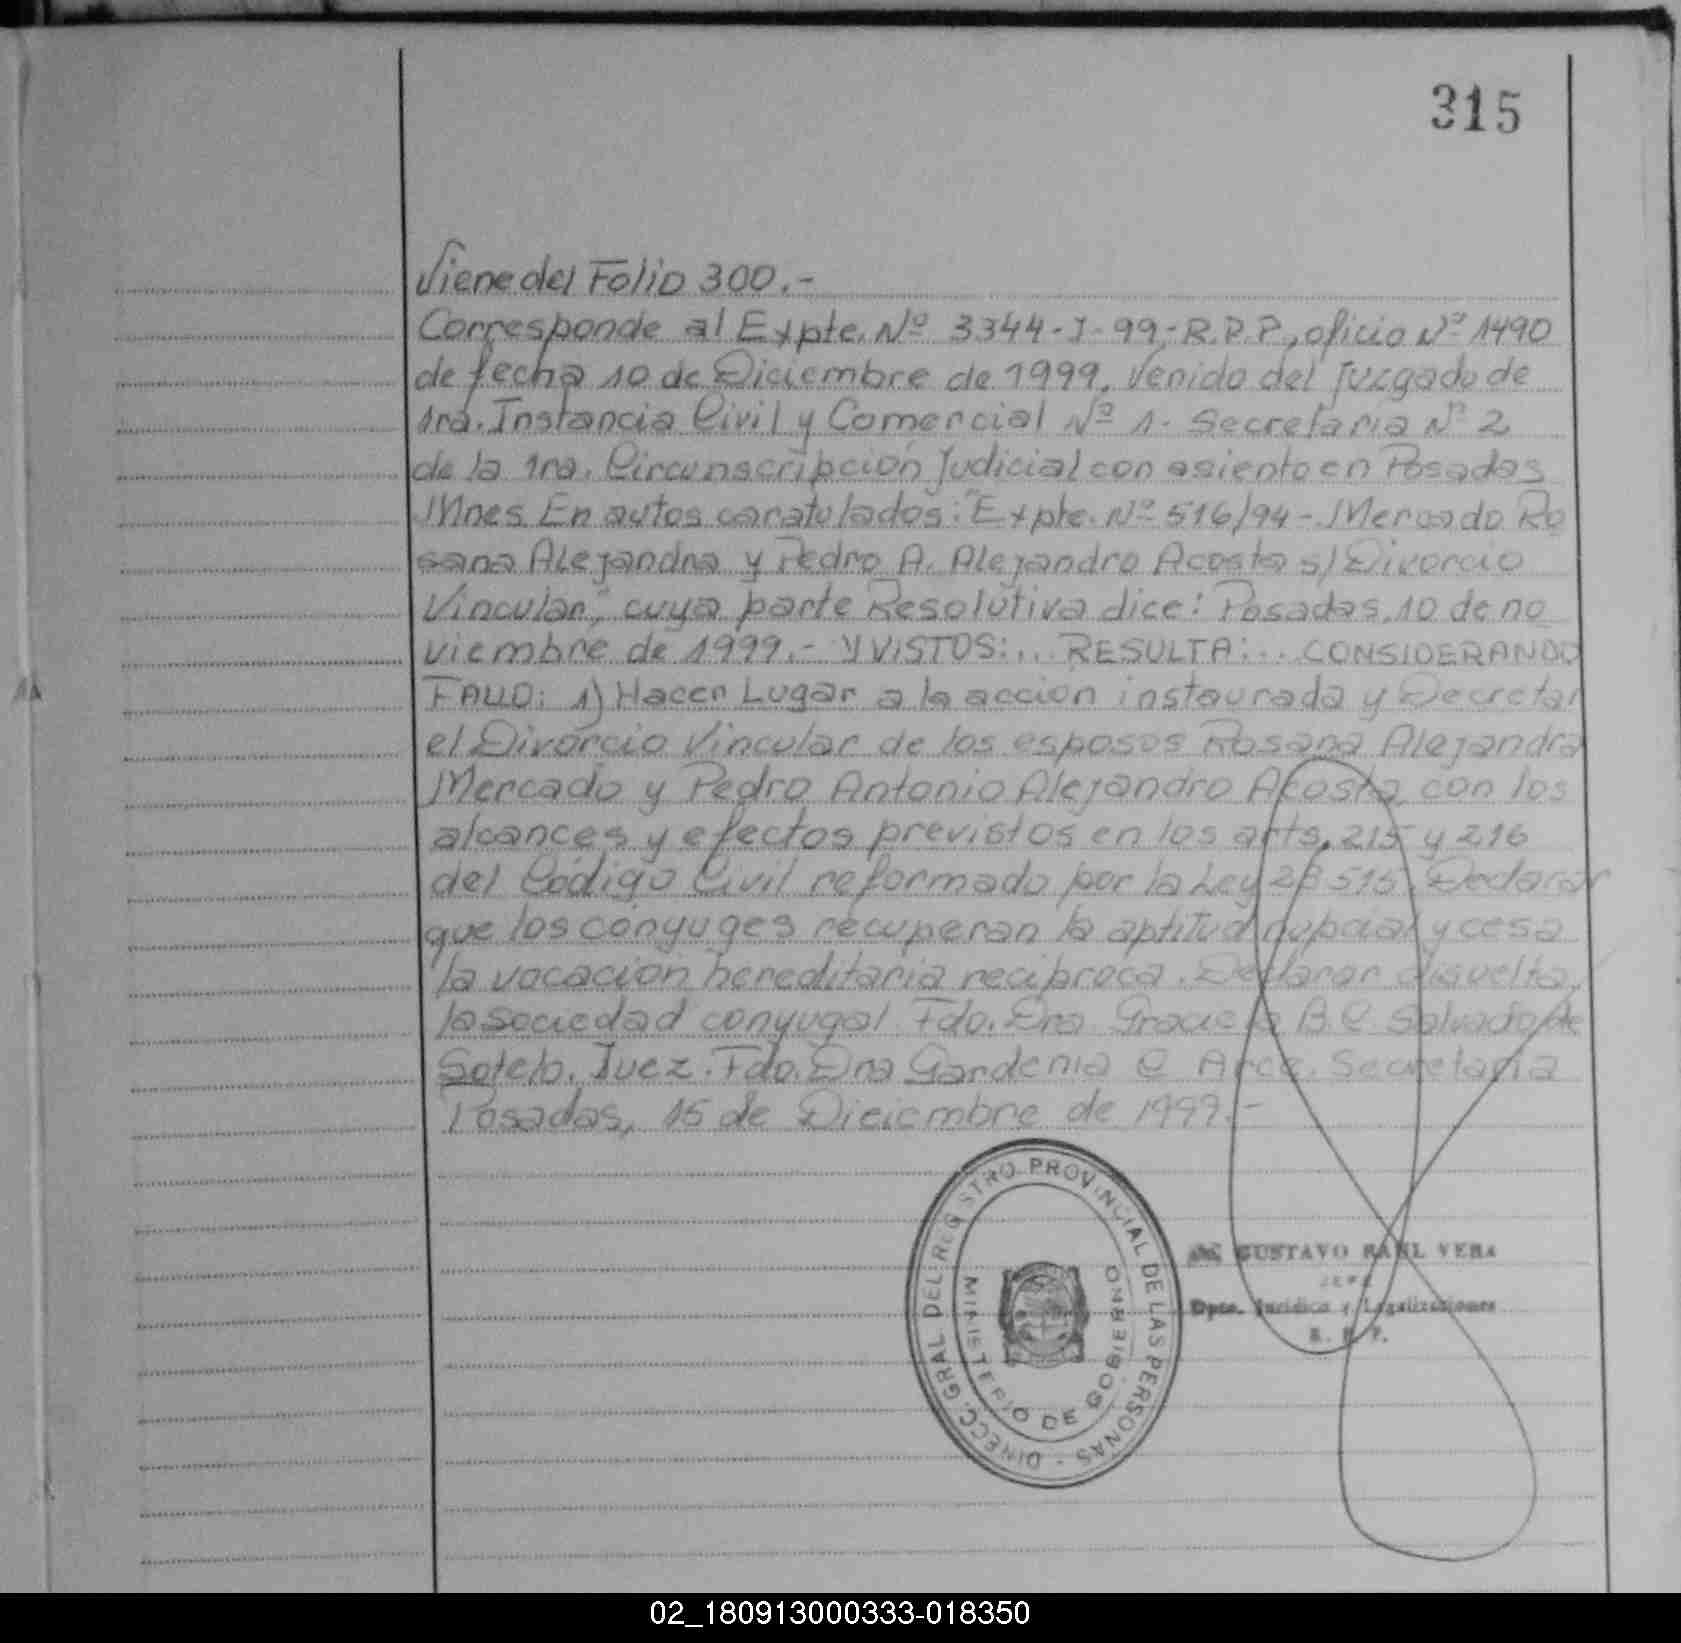 315
Viene del Folio 300.-
Corresponde al Expte. Nº 3344-I-99-R.P.P, oficio Nº 1490
de fecha 10 de Diciembre de 1999, Venido del Juzgado de
1ra. Instancia Civil y Comercial Nº 1. Secretaria Nº 2
de la 1ra. Circunscripción Judicial con asiento en Posadas
Mnes. En autos caratulados: "Expte. Nº 516/94 - Mercado Ro
sana Alejandra y Pedro A. Alejandro Acosta s/ Divorcio
Vincular", cuya parte Resolutiva dice: Posadas, 10 de no
viembre de 1999.- Y VISTOS:... RESULTA:... CONSIDERANDO
FALLO: 1) Hacer Lugar a la acción instaurada y Decretar
el Divorcio Vincular de los esposos Rosana Alejandra
Mercado y Pedro Antonio Alejandro Acosta, con los
alcances y efectos previstos en los arts. 215 y 216
del Código Civil reformado por la Ley 23515. Declarar
que los cónyuges recuperan la aptitud nupcial y cesa
la vocación hereditaria reciproca. Declarar disuelta
la sociedad conyugal Fdo. Dra Graciela B.C Salvado de
Sotelo. Juez. Fdo. Dra Gardenia C Arce. Secretaria
Posadas, 15 de Dieciembre de 1999.-
DIRECC. GRAL DEL REGISTRO PROVINCIAL DE LAS PERSONAS -
MINISTERIO DE GOBIERNO
GUSTAVO RAUL VERA
JEFE
Dpto. Jurídico y Legalizaciones
R. P. P.
02_180913000333-018350